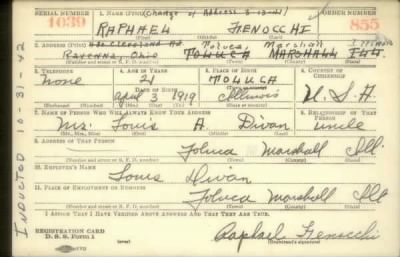 SERIAL NUMBER 1. NAME (Print) (Change of Address 3-13-41) ORDER NUMBER
1039 RAPHAEL FENOCCHI 855
2. ADDRESS (Print) Toluca, Marshall Illinois
Ravenna, Ohio TOLUCA MARSHALL ILL
3. TELEPHONE 4. AGE IN YEARS 5. PLACE OF BIRTH 6. COUNTRY OF CITIZENSHIP
None 21 TOLUCA
DATE OF BIRTH
1919 Illinois U.S.A
7. NAME OF PERSON WHO WILL ALWAYS KNOW YOUR ADDRESS 8. RELATIONSHIP OF THAT PERSON
Mr. Louis A Divan uncle
(Mr., Mrs., Miss) (First) (Middle) (Last)
9. ADDRESS OF THAT PERSON
Toluca Marshall Ill.
(Number and street or R. F. D. number) (Town) (County) (State)
10. EMPLOYER'S NAME
Louis Divan
11. PLACE OF EMPLOYMENT OR BUSINESS
Toluca Marshall Ill
(Number and street or R. F. D. number) (Town) (County) (State)
I AFFIRM THAT I HAVE VERIFIED ABOVE ANSWERS AND THAT THEY ARE TRUE.
REGISTRATION CARD
D. S. S. Form 1 (over) Raphael Fenocchi
(Registrant's signature)
INDUCTED 10-31-42